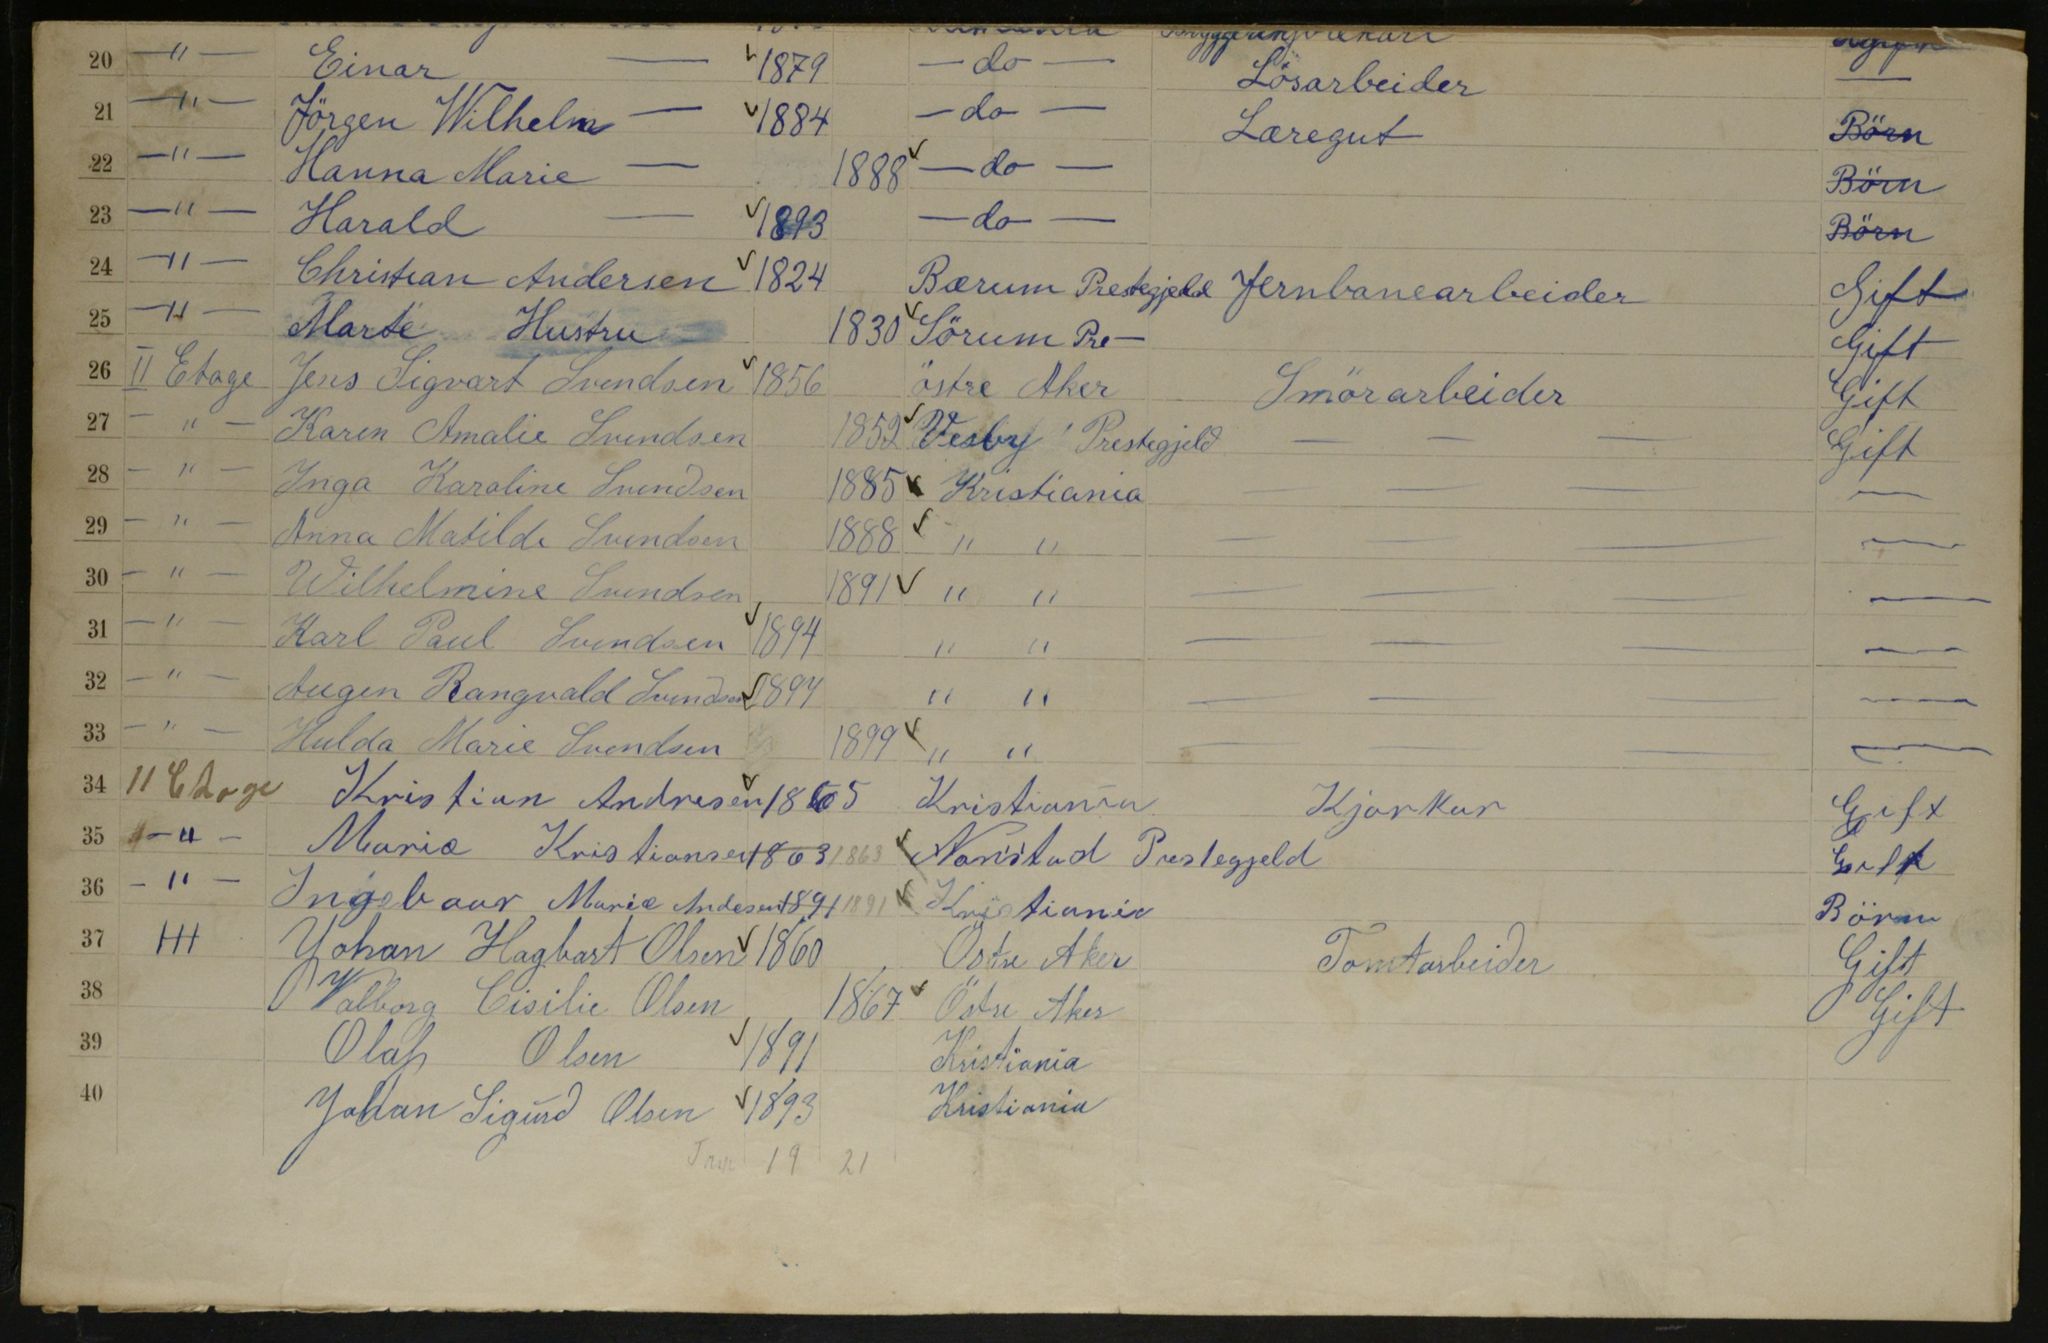 20 — " — Einar — 1879 — do — Lösarbeider —
21 — " — Jörgen Wilhelm — 1884 — do — Læregut Börn
22 — " — Hanna Marie — 1888 — do — Börn
23 — " — Harald — 1893 — do — Börn
24 — " — Christian Andersen 1824 Bærum Prestegjeld Jernbanearbeider Gift
25 — " — Marte Hustru 1830 Sörum Pre — Gift
26 II Etage Jens Sigvart Svendsen 1856 östre Aker Smörarbeider Gift
27 — " — Karen Amalie Svendsen 1852 Vesby Prestegjeld — — — Gift
28 — " — Inga Karoline Svendsen 1885 Kristiania — — — —
29 — " — Anna Matilde Svendsen 1888 " " — — — —
30 — " — Wilhelmine Svendsen 1891 " " — — — —
31 — " — Karl Paul Svendsen 1894 " " — — — —
32 — " — Augen Rangvald Svendsen 1894 " " — — — —
33 — " — Hulda Marie Svendsen 1899 " " — — —
34 11 Etage Kristian Andresen 1865 Kristiania Kjorkur Gift
35 — " — Marie Kristiansen 1863 1863 Nanstad Prestegjeld Gift
36 — " — Ingeboar Marie Andesen 1891 1891 Kristiania Börn
37 III Johan Hagbart Olsen 1860 Östre Aker Tomtarbeider Gift
38 Valborg Cisilie Olsen 1867 Östre Aker Gift
39 Olaf Olsen 1891 Kristiania
40 Johan Sigurd Olsen 1893 Kristiania
19 21